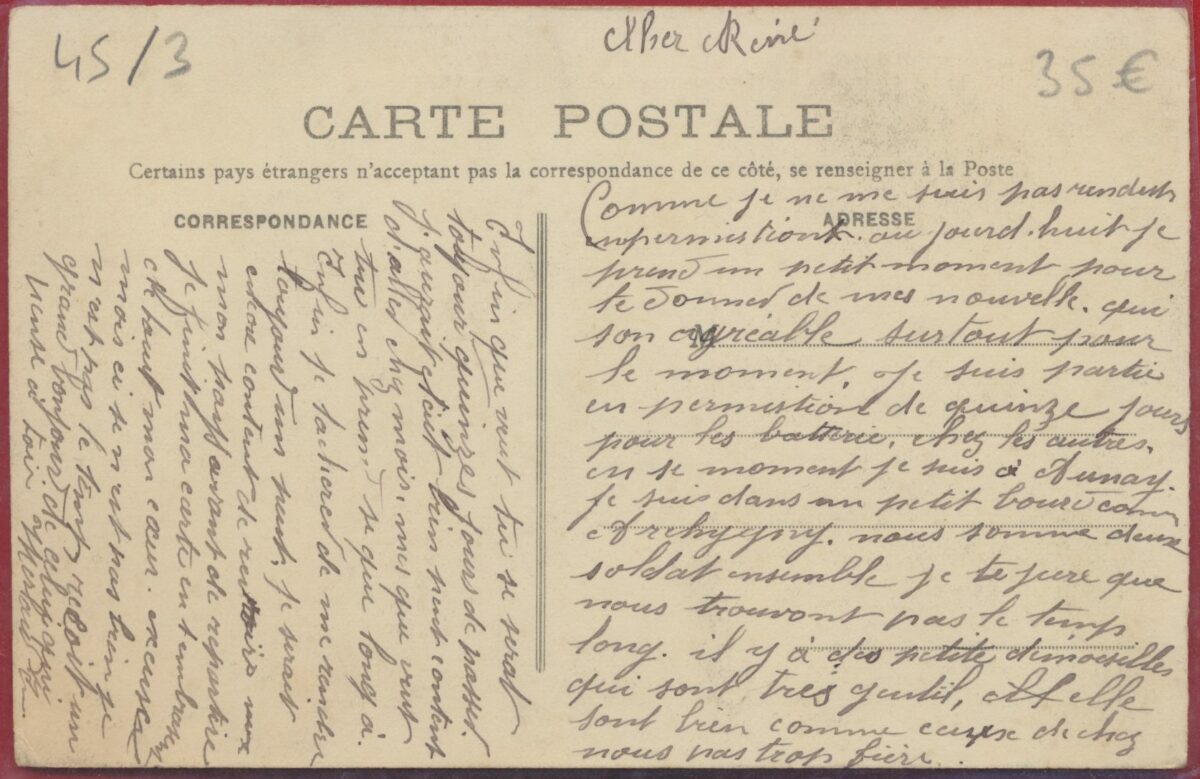 45/3
Cher Réné
35 €
CARTE POSTALE
Certains pays étrangers n'acceptant pas la correspondance de ce côté, se renseigner à la Poste
CORRESPONDANCE
ADRESSE
M
Comme je ne me suis pas rendut
enpermistion. au jourd.huit je
prend un petit moment pour
te donner de mes nouvelle. qui
son agréable surtout pour
le moment. Je suis partie
en permistion de quinze jours
pour les batterie, chez les autres.
en se moment je suis à Aunay.
je suis dans un petit boure
Archygny. nous somme deux
soldat ensemble je te jure que
nous trouvont pas le temp
long. il y à des petite demoiselles
qui sont très gentil, elle
sont bien comme ceuxe de chez
nous pas trop fière.
Enfin que veut tu se serat
toujour quinzes jours de passer.
J'aurait etait bien ment content
d'aller chez mois. mes que veut
tue en prend se que long à.
Enfin je tacheret de me rendre
toujour un nuit, je serait
encore content de revoire mon
mon pays avant de repartire
Je finit ma carte en tembrasent
ch mon cœur. excuse
mois ci se n'est pas bien je
n'est pas le tent reçoit un
grand bonjour de celui qui
pense à toit